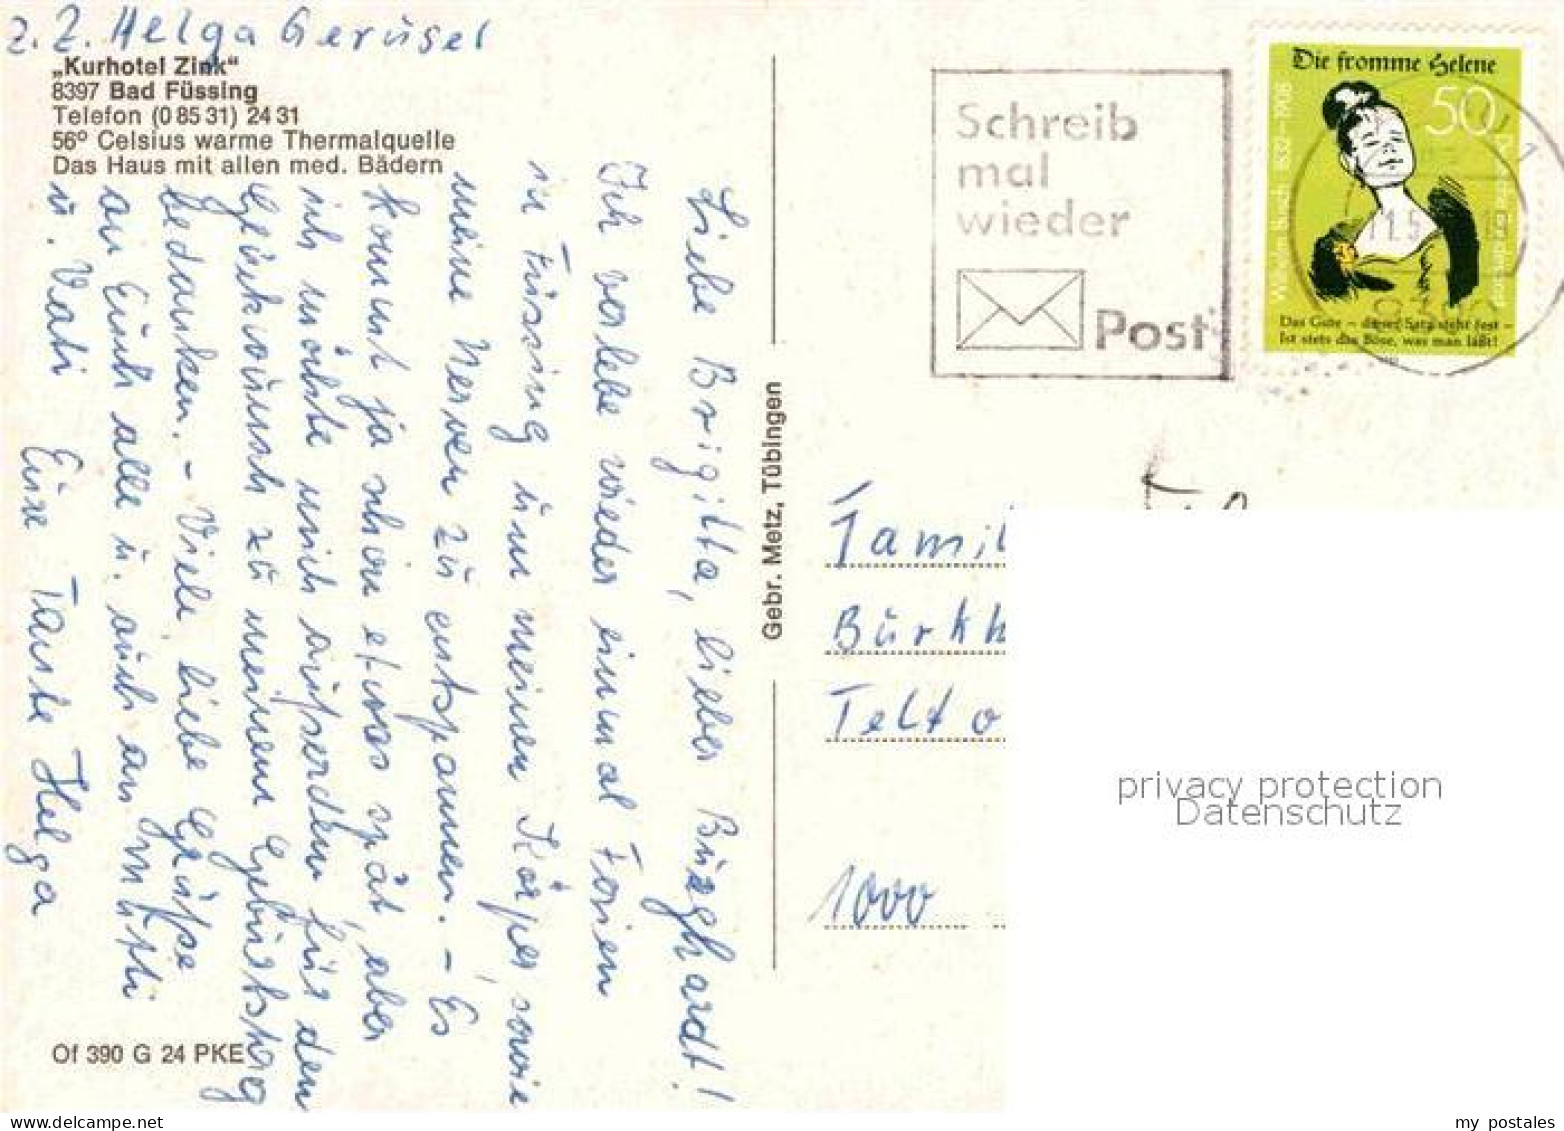 z. Z. Helga Gerüsel
„Kurhotel Zink“
8397 Bad Füssing
Telefon (0 85 31) 24 31
56° Celsius warme Thermalquelle
Das Haus mit allen med. Bädern
Liebe Brigitta, lieber Burghardt!
Ich verlebe wieder einmal Ferien
in Füssing um meinen Körper, sowie
meine Nerven zu entspannen. – Es
kommt ja schon etwas spät, aber
ich möchte mich außerdem für den
Glückwunsch zu meinem Geburtstag
bedanken. – Viele, liebe Grüße
an Euch alle u. auch an Mutti
u. Vati Eure Tante Helga
Of 390 G 24 PKE
Gebr. Metz, Tübingen
Schreib
mal
wieder
Post
Die fromme Helene
50
Wilhelm Busch 1832–1908
Deutsche Bundespost
Das Gute – dieser Satz steht fest –
Ist stets das Böse, was man läßt!
11.5
19
Famil
Burkh
Telto
1000
privacy protection
Datenschutz
www.delcampe.net
my_postales